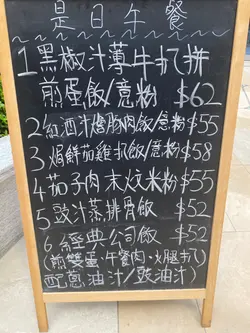 是日午餐
1 黑椒汁薄牛扒拼
煎蛋飯/意粉 $62
2 紅酒汁燴豚肉飯/意粉 $55
3 焗鮮茄雞扒飯/意粉 $58
4 茄子肉末炆米粉 $55
5 豉汁蒸排骨飯 $52
6 經典公司飯 $52
(煎雙蛋·午餐肉·火腿扒)
配蔥油汁/豉油汁)